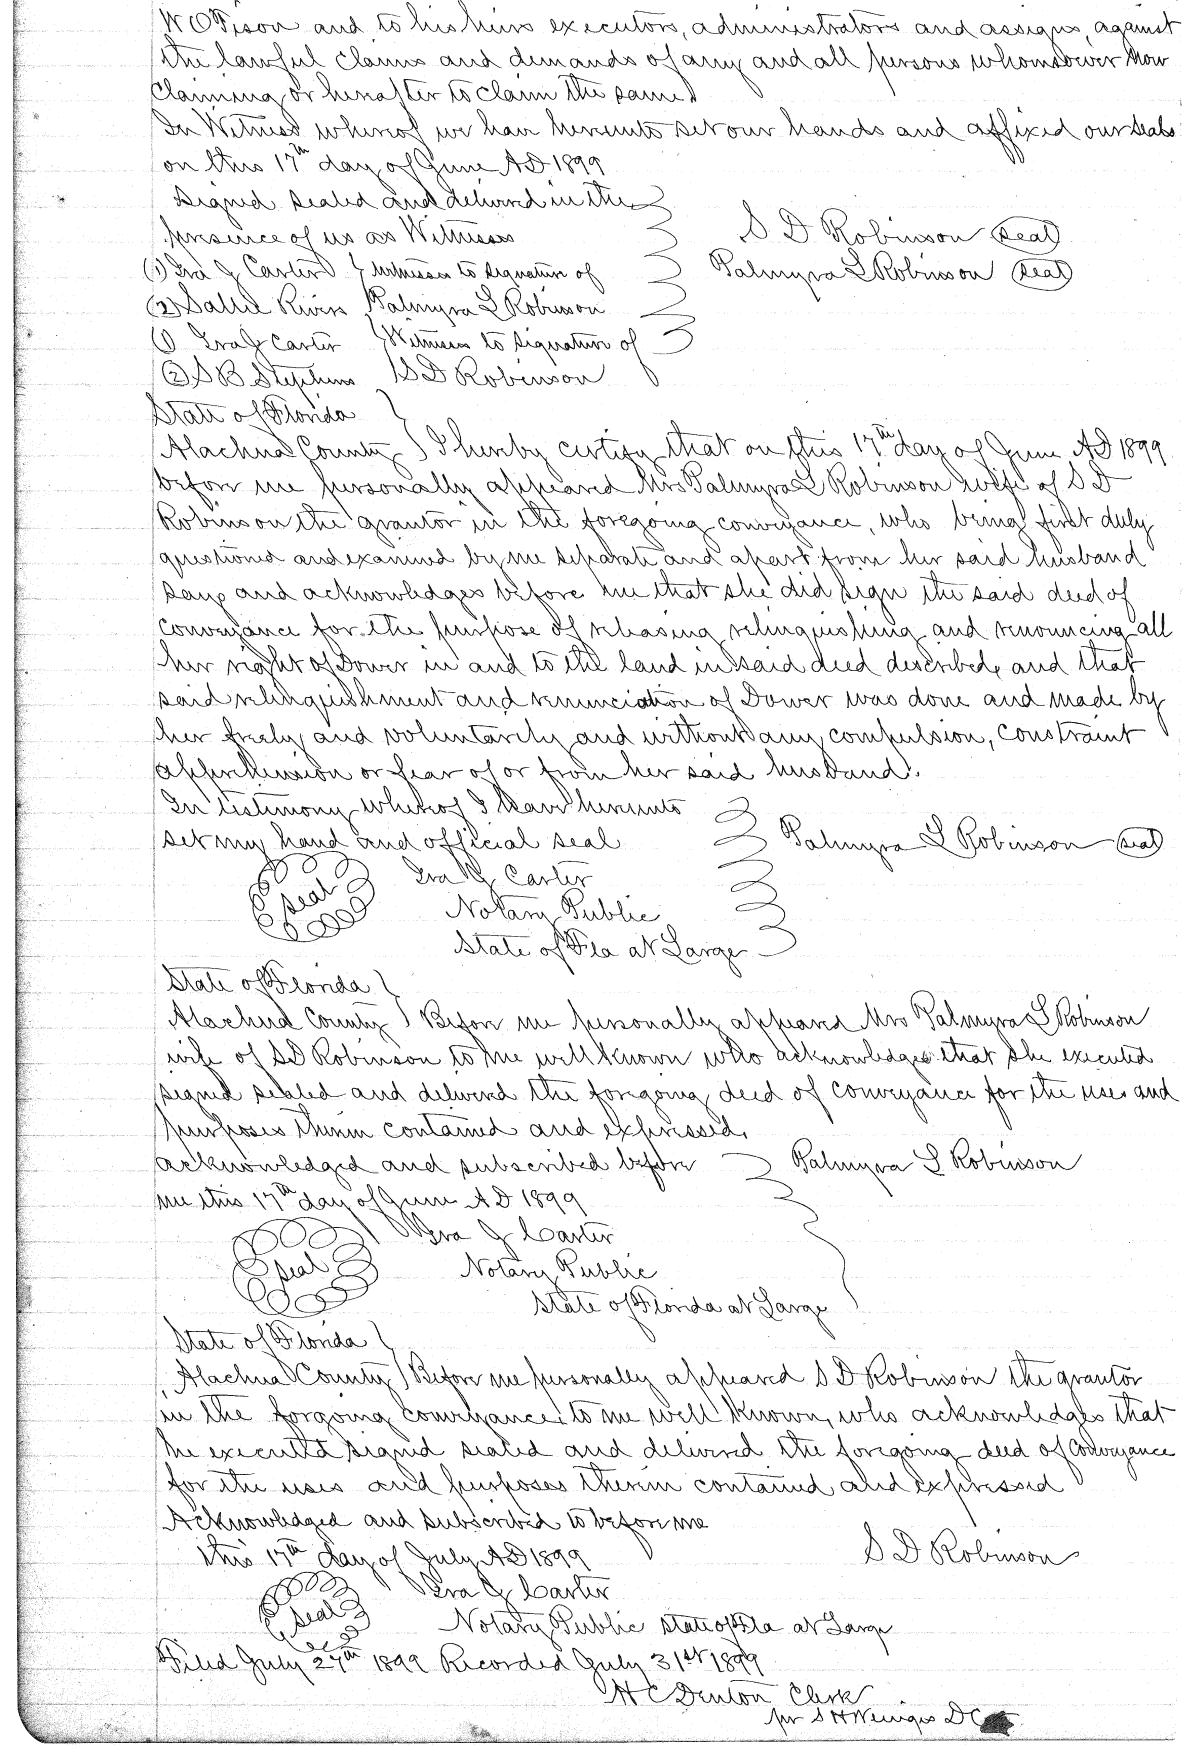 W O Tison and to his heirs executors, administrators and assigns, against
the lawful claims and demands of any and all persons whomsoever now
claiming or hereafter to claim the same.
In Witness whereof we have hereunto set our hands and affixed our seals
on this 17th day of June A D 1899
Signed sealed and delivered in the
presence of us as Witnesses
S D Robinson (seal)
(1) Ira J Carter } witnesses to signature of
Palmyra L Robinson (seal)
(2) Sallie Rivers Palmyra L Robinson
(1) Ira J Carter } Witnesses to signature of
(2) S B Stephens S D Robinson
State of Florida }
Alachua County } I hereby certify that on this 17th day of June A D 1899
before me personally appeared Mrs Palmyra L Robinson wife of S D
Robinson the grantor in the foregoing conveyance, who being first duly
questioned and examined by me separate and apart from her said husband
says and acknowledges before me that she did sign the said deed of
conveyance for the purpose of releasing relinquishing and renouncing all
her right of Dower in and to the land in said deed described, and that
said relinquishment and renunciation of Dower was done and made by
her freely and voluntarily and without any compulsion, constraint
apprehension or fear of or from her said husband.
In testimony whereof I have hereunto
set my hand and official seal
Palmyra L Robinson (seal)
(seal) Ira J Carter
Notary Public
State of Fla at Large
State of Florida }
Alachua County } Before me personally appeared Mrs Palmyra L Robinson
wife of S D Robinson to me well known who acknowledges that she executed
signed sealed and delivered the foregoing deed of conveyance for the uses and
purposes therein contained and expressed.
acknowledged and subscribed before
Palmyra L Robinson
me this 17th day of June A D 1899
Ira J Carter
(seal) Notary Public
State of Florida at Large
State of Florida }
Alachua County } Before me personally appeared S D Robinson the grantor
in the forgoing conveyance to me well known, who acknowledges that
he executed signed sealed and delivered the foregoing deed of conveyance
for the uses and purposes therein contained and expressed
Acknowledged and subscribed to before me
this 17th day of July A D 1899
S D Robinson
Ira J Carter
(seal) Notary Public State of Fla at Large
Filed July 27th 1899 Recorded July 31st 1899
H C Denton Clerk
per S H Wienges D C